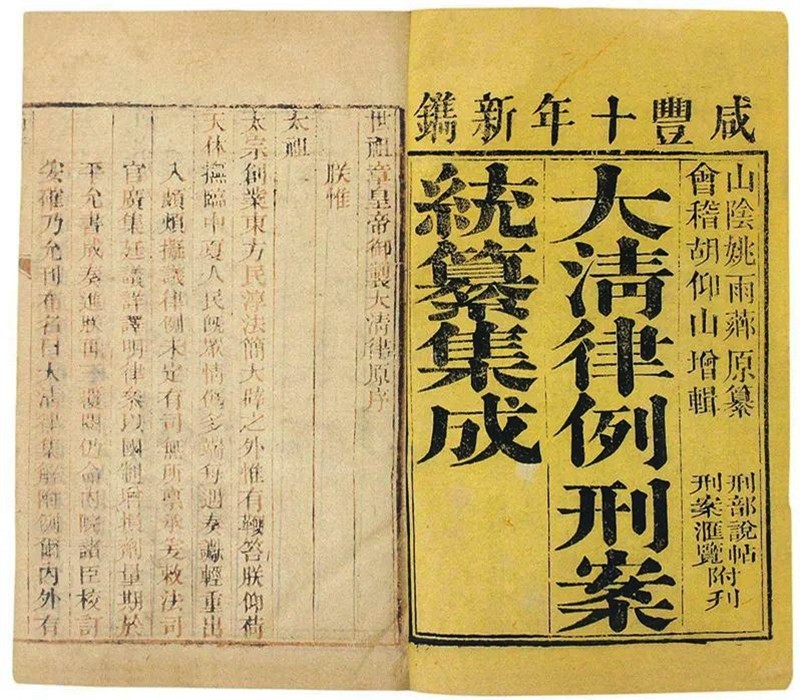 咸豐十年新鐫
山陰姚雨薌原纂
會稽胡仰山增輯
刑部說帖
刑案匯覽
附刊
大清律例刑案
統纂集成
世祖章皇帝御製大清律原序
朕惟
太祖
太宗創業東方民淳法簡大辟之外惟有鞭笞朕仰荷
天休撫臨中夏人民旣眾情僞多端每遇奏讞輕重出
入頗煩擬議律例未定有司無所稟承爰敕法司
官廣集廷議詳譯明律參以國制增損劑量期於
平允書成奏進朕再三覆閱仍命內院諸臣校訂
妥確乃允刊布名曰大清律集解附例爾內外有